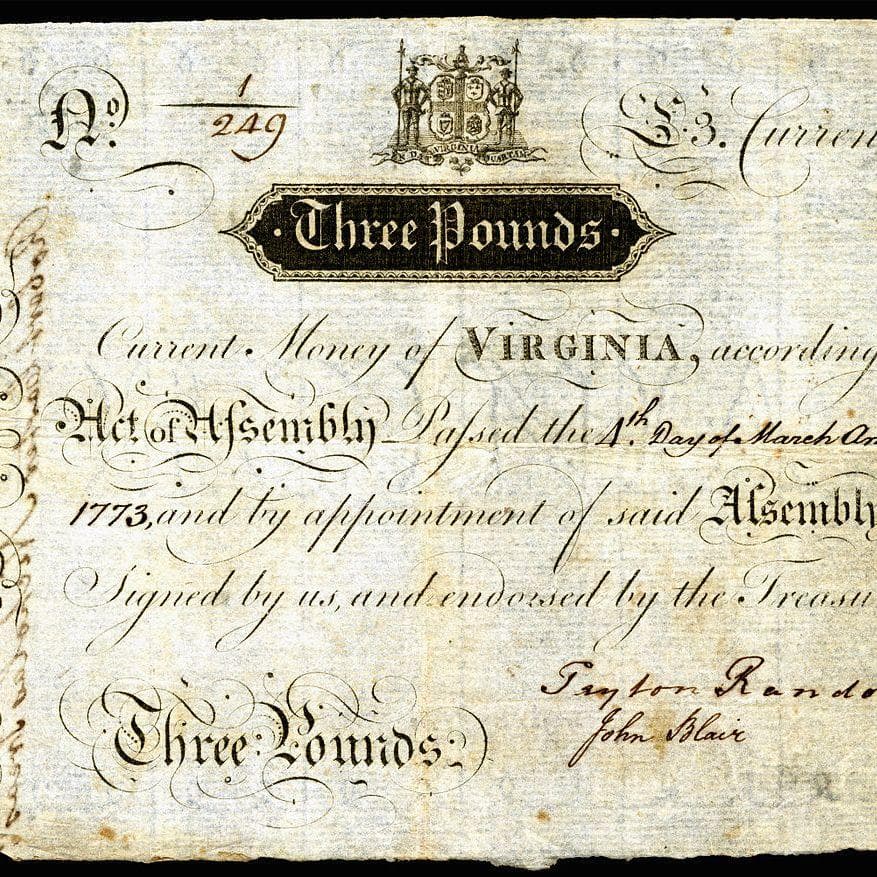 No. 1/249
VIRGINIA
EN DAT QUARTAM
£3. Curren
Three Pounds
Current Money of VIRGINIA, according
Act of Assembly Passed the 4th. Day of March An
1773, and by appointment of said Assembly
Signed by us, and endorsed by the Treasu
Peyton Rando
John Blair
Three Pounds